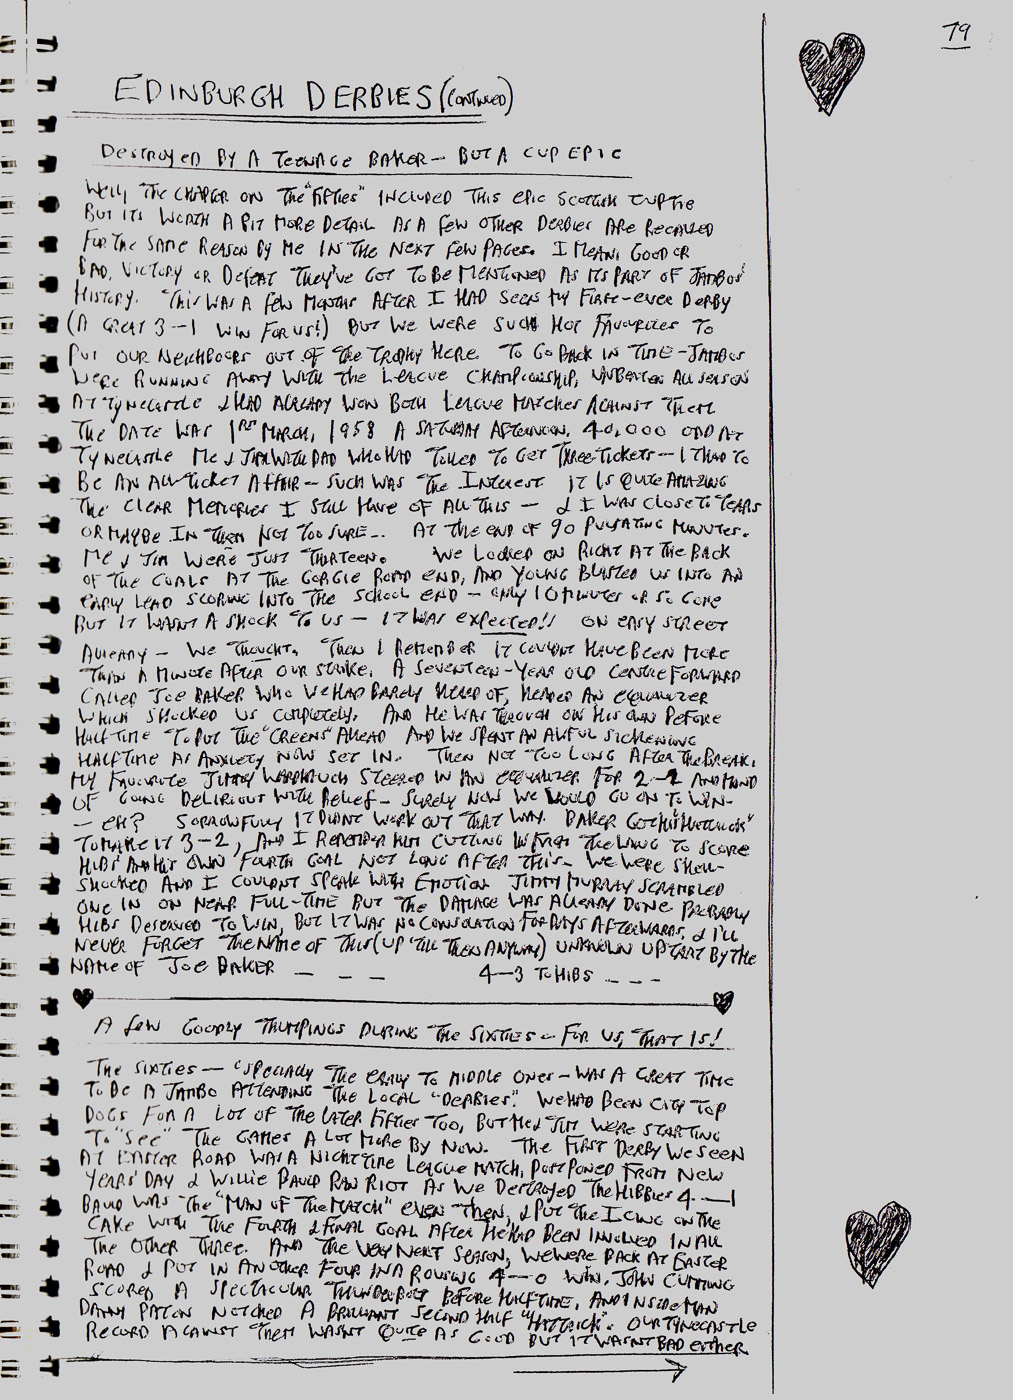 79
EDINBURGH DERBIES (CONTINUED)
DESTROYED BY A TEENAGE BAKER - BUT A CUP EPIC
WELL, THE CHAPTER ON THE "FIFTIES" INCLUDED THIS EPIC SCOTTISH CUP TIE
BUT ITS WORTH A BIT MORE DETAIL AS A FEW OTHER DERBIES ARE RECALLED
FOR THE SAME REASON BY ME IN THE NEXT FEW PAGES. I MEAN, GOOD OR
BAD, VICTORY OR DEFEAT THEY'VE GOT TO BE MENTIONED AS ITS PART OF JAMBOS'
HISTORY. THIS WAS A FEW MONTHS AFTER I HAD SEEN MY FIRST-EVER DERBY
(A GREAT 3-1 WIN FOR US!) BUT WE WERE SUCH HOT FAVOURITES TO
PUT OUR NEIGHBOORS OUT OF THE TROPHY HERE. TO GO BACK IN TIME - JAMBOS
WERE RUNNING AWAY WITH THE LEAGUE CHAMPIONSHIP, UNBEATEN ALL SEASON
AT TYNECASTLE & HAD ALREADY WON BOTH LEAGUE MATCHES AGAINST THEM
THE DATE WAS 1RST MARCH, 1958 A SATURDAY AFTERNOON. 40,000 ODD AT
TYNECASTLE ME & JIM WITH DAD WHO HAD TOILED TO GET THREE TICKETS - IT HAD TO
BE AN ALL-TICKET AFFAIR - SUCH WAS THE INTEREST IT IS QUITE AMAZING
THE CLEAR MEMORIES I STILL HAVE OF ALL THIS - & I WAS CLOSE TO TEARS
OR MAYBE IN THEM NOT TOO SURE... AT THE END OF 90 PULSATING MINUTES.
ME & JIM WERE JUST THIRTEEN. WE LOOKED ON RIGHT AT THE BACK
OF THE GOALS AT THE GORGIE ROAD END, AND YOUNG BLASTED US INTO AN
EARLY LEAD SCORING INTO THE SCHOOL END - ONLY 10 MINUTES OR SO GONE
BUT IT WASNT A SHOCK TO US - IT WAS EXPECTED!! ON EASY STREET
ALREADY - WE THOUGHT. THEN I REMEMBER IT COULDNT HAVE BEEN MORE
THAN A MINUTE AFTER OUR STRIKE, A SEVENTEEN-YEAR OLD CENTRE FORWARD
CALLED JOE BAKER WHO WE HAD BARELY HEARD OF, HEADED AN EQUALIZER
WHICH SHOCKED US COMPLETELY. AND HE WAS THROUGH ON HIS OWN BEFORE
HALF TIME TO PUT THE "GREENS" AHEAD AND WE SPENT AN AWFUL SICKENING
HALFTIME AS ANXIETY NOW SET IN. THEN NOT TOO LONG AFTER THE BREAK,
MY FAVOURITE JIMMY WARDHAUGH STEERED IN AN EQUALIZER FOR 2-2 AND MIND
OF GOING DELIRIOUS WITH RELIEF - SURELY NOW WE WOULD GO ON TO WIN -
- EH? SORROWFULLY IT DIDNT WORK OUT THAT WAY. BAKER GOT HIS "HATTRICK"
TO MAKE IT 3-2, AND I REMEMBER HIM CUTTING IN FROM THE WING TO SCORE
HIBS' AND HIS OWN FOURTH GOAL NOT LONG AFTER THIS - WE WERE SHELL-
SHOCKED AND I COULDNT SPEAK WITH EMOTION JIMMY MURRAY SCRAMBLED
ONE IN ON NEAR FULL-TIME BUT THE DAMAGE WAS ALREADY DONE PROBABLY
HIBS DESERVED TO WIN, BUT IT WAS NO CONSOLATION FOR DAYS AFTERWARDS, & I'LL
NEVER FORGET THE NAME OF THIS (UP 'TILL THEN ANYWAY) UNKNOWN UPSTART BY THE
NAME OF JOE BAKER _ _ _ 4-3 TO HIBS _ _ _
A FEW GOODLY THUMPINGS DURING THE SIXTIES - FOR US, THAT IS!
THE SIXTIES - 'SPECIALLY THE EARLY TO MIDDLE ONES - WAS A GREAT TIME
TO BE A JAMBO ATTENDING THE LOCAL "DERBIES". WE HAD BEEN CITY TOP
DOGS FOR A LOT OF THE LATER FIFTIES TOO, BUT ME & JIM WERE STARTING
TO "SEE" THE GAMES A LOT MORE BY NOW. THE FIRST DERBY WE SEEN
AT EASTER ROAD WAS A NIGHT TIME LEAGUE MATCH, POSTPONED FROM NEW
YEARS' DAY & WILLIE BAULD RAN RIOT AS WE DESTROYED THE HIBBIES 4-1
BAULD WAS THE "MAN OF THE MATCH" EVEN THEN, & PUT THE ICING ON THE
CAKE WITH THE FOURTH & FINAL GOAL AFTER HE HAD BEEN INVOLVED IN ALL
THE OTHER THREE. AND THE VERY NEXT SEASON, WE WERE BACK AT EASTER
ROAD & PUT IN ANOTHER FOUR IN A ROUSING 4-0 WIN. JOHN CUMMING
SCORED A SPECTACULAR THUNDERBOLT BEFORE HALFTIME, AND INSIDE MAN
DANNY PATON NOTCHED A BRILLIANT SECOND HALF "HATTRICK". OUR TYNECASTLE
RECORD AGAINST THEM WASNT QUITE AS GOOD BUT IT WASNT BAD EITHER